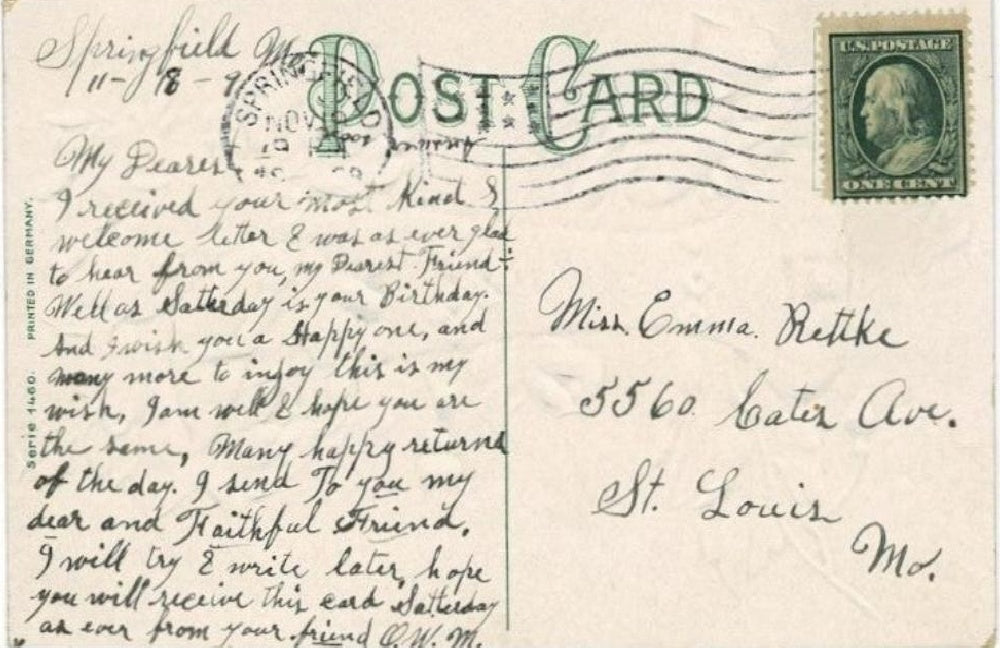 Springfield Mo
11-8-9
POST CARD
SPRINGFIELD
NOV
U.S. POSTAGE
ONE CENT
My Dearest
I received your most kind &
welcome letter & was as ever glad
to hear from you, my Dearest Friend.
Well as Satterday is your Birthday.
And I wish you a Happy one, and
many more to injoy this is my
wish, I am well & hope you are
the same, Many happy returns
of the day. I send To you my
dear and Faithful Friend.
I will try & write later, hope
you will receive this card Satterday
as ever from your friend O.W.M.
Answer soon
Miss. Emma. Rettke
5560 Cates Ave.
St. Louis
Mo.
PRINTED IN GERMANY.
Serie 1460.